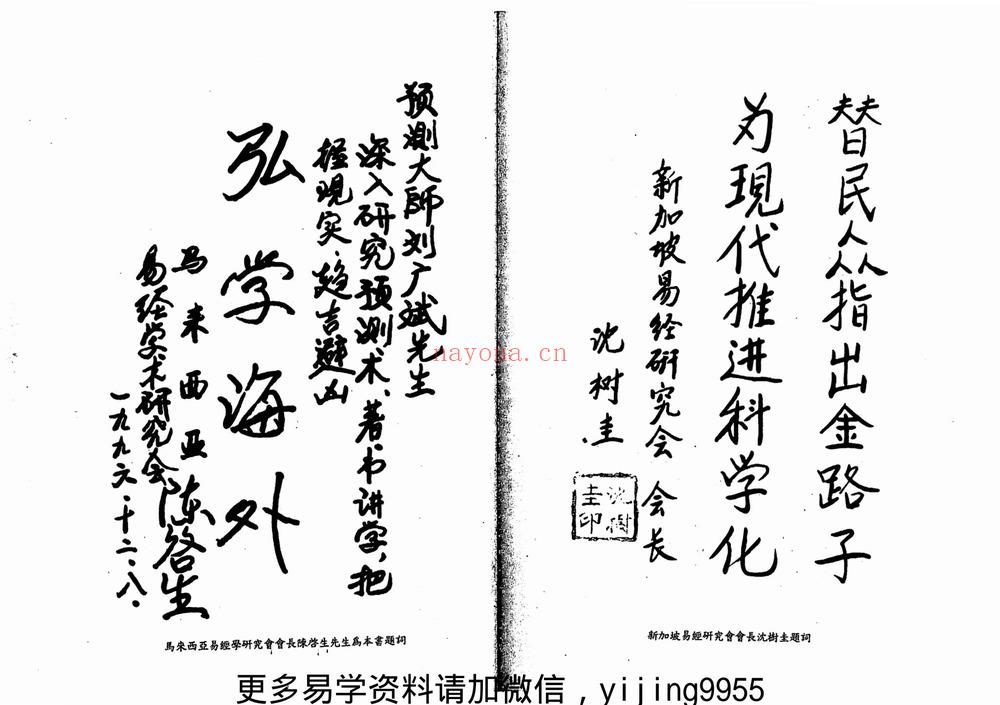 替民众指出金路子
为現代推进科学化
新加坡易经研究会会长
沈树圭
沈樹
圭印
新加坡易經研究會會長沈樹圭題詞
预測大师刘广斌先生
深入研究预测术、著书讲学，把
握現实、趋吉避凶
弘学海外
马来西亚
易经学术研究会
陈啓生
一九九六·十二·八·
馬來西亞易經學研究會會長陳啓生先生爲本書題詞
nayona.cn
更多易学资料请加微信，yijing9955